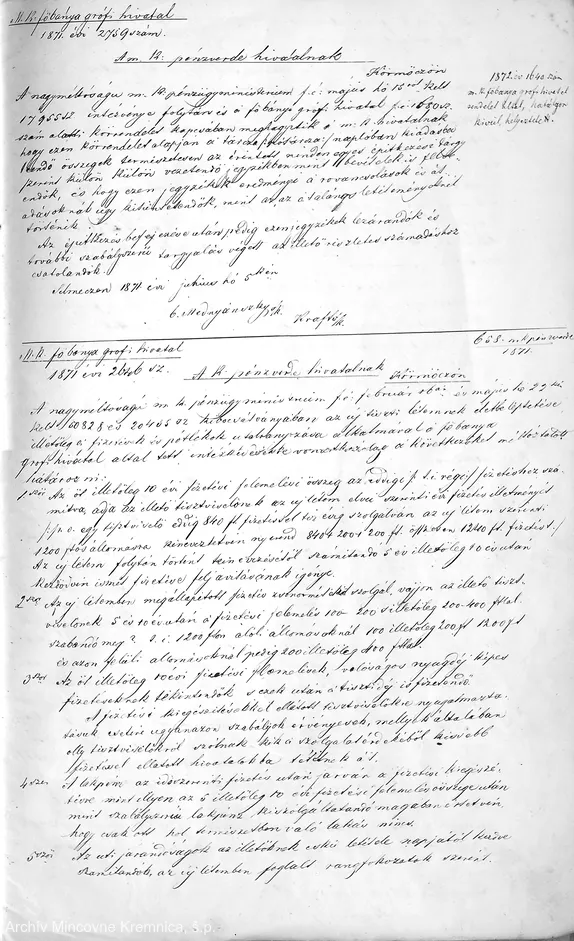 M. K. főbánya grófi hivatal
1871. évi 2759 szám.
A m. K. pénzverde hivatalnak
Körmöczön
1872. év 1640 szám
m. K. főbánya grófi
rendelet által, hatályon
kívül helyeztetett.
A nagyméltóságu m. K. pénzügyministerium f. é. május hó 15ről kelt
17955 sz. intézvénye folytán és a főbánya grófi hivatal f. é. 1680 sz.
szám alatti körrendelet kapcsában meghagyatik a m. K. hivatalnak
hogy ezen körrendelet alapján a naplóban kiadásba
teendő összegek természetesen az érintett minden egyes építkezési tárgy
szerint külön külön vezetendő jegyzékben mint bevételek is
endők, és hogy ezen jegyzékek eredményei a rovancsolások és át
adásoknál úgy kitüntetendők, mint az az átalányos letéteményeknél
történik.
Az építkezés befejezése után pedig ezen jegyzékek lezárandók és
további szabályszerű tárgyalás végett az illető részletes számadáshoz
csatolandók.
Selmeczen 1871. évi julius hó 5én
Mednyánszky s/k.
Kraft s/k.
M. K. főbánya grófi hivatal
1871 évi 2646 sz.
658. m. k. pénzverde
1871.
A K. pénzverde hivatalnak
Körmöczön
A nagyméltóságú m. K. pénzügyminisztérium f. é. február és május hó 22én
kelt 60828 és 20465 sz. kibocsátványában az új tiszti létszámnak életbeléptetése
illetőleg a fizetések és pótlékok utalványozása alkalmával a főbánya
grófi hivatal által tett intézkedésekre vonatkozólag a következőket méltóztatott
határozni:
1ször Az öt illetőleg 10 évi fizetési felemelési összeg az eddigi /: t. i. régi :/ fizetéshez szá-
mítva, adja az illető tisztviselőnek az új létszám elvei szerinti évi fizetés illetményét
/: p. o. egy tisztviselő eddig 840 ft fizetéssel tíz évig szolgálván az új létszám szerinti
1200 ftos állomásra kineveztetvén nyerend 840 + 200 + 200 ft. összesen 1240 ft. fizetést. :/
Az új létszám folytán történt kineveztetéstől számítandó 5 év illetőleg 10 év után
kezdődvén ismét fizetése feljavításának igénye.
2szor Az új létszámban megállapított fizetés szolgál, vajjon az illető tiszt-
viselőnek 5 és 10 év után a fizetési felemelés 100 - 200 illetőleg 200-400 fttal.
szabandó meg? t. i. 1200 ften alúli állomásoknál 100 illetőleg 200 ft 1200 ft
és azon felüli állomásoknál pedig 200 illetőleg 400 fttal.
3szor Az öt illetőleg 10 évi fizetési felemelések, valóságos nyugdíj képes
fizetéseknek tekintendők s ezek után a tisztidíj is fizetendő.
A fizetési kiegészítésekkel ellátott tisztviselőkre nyugalmazta-
tásuk esetén ugyanazon szabályok érvényesek, mellyek általában
oly tisztviselőkről szólnak kik a szolgálat érdekéből kisebb
fizetéssel ellátott hivatalokba tétetnek át.
4szer A lakpénz az időszerinti fizetés után járván a fizetési kiegészí-
tésre mint ellyen az 5 illetőleg 10 évi fizetési felemelés összege után
mint szabályszerű lakpénz kiszolgáltatandó magában értetvén
hogy csak ott hol természetben való lakás nincs.
5ször Az uti járandóságok az illetőknek eskü letétele napjától kezdve
számítandók, az új létszámban foglalt rangfokozatok szerint.
Archív Mincovne Kremnica, š.p.